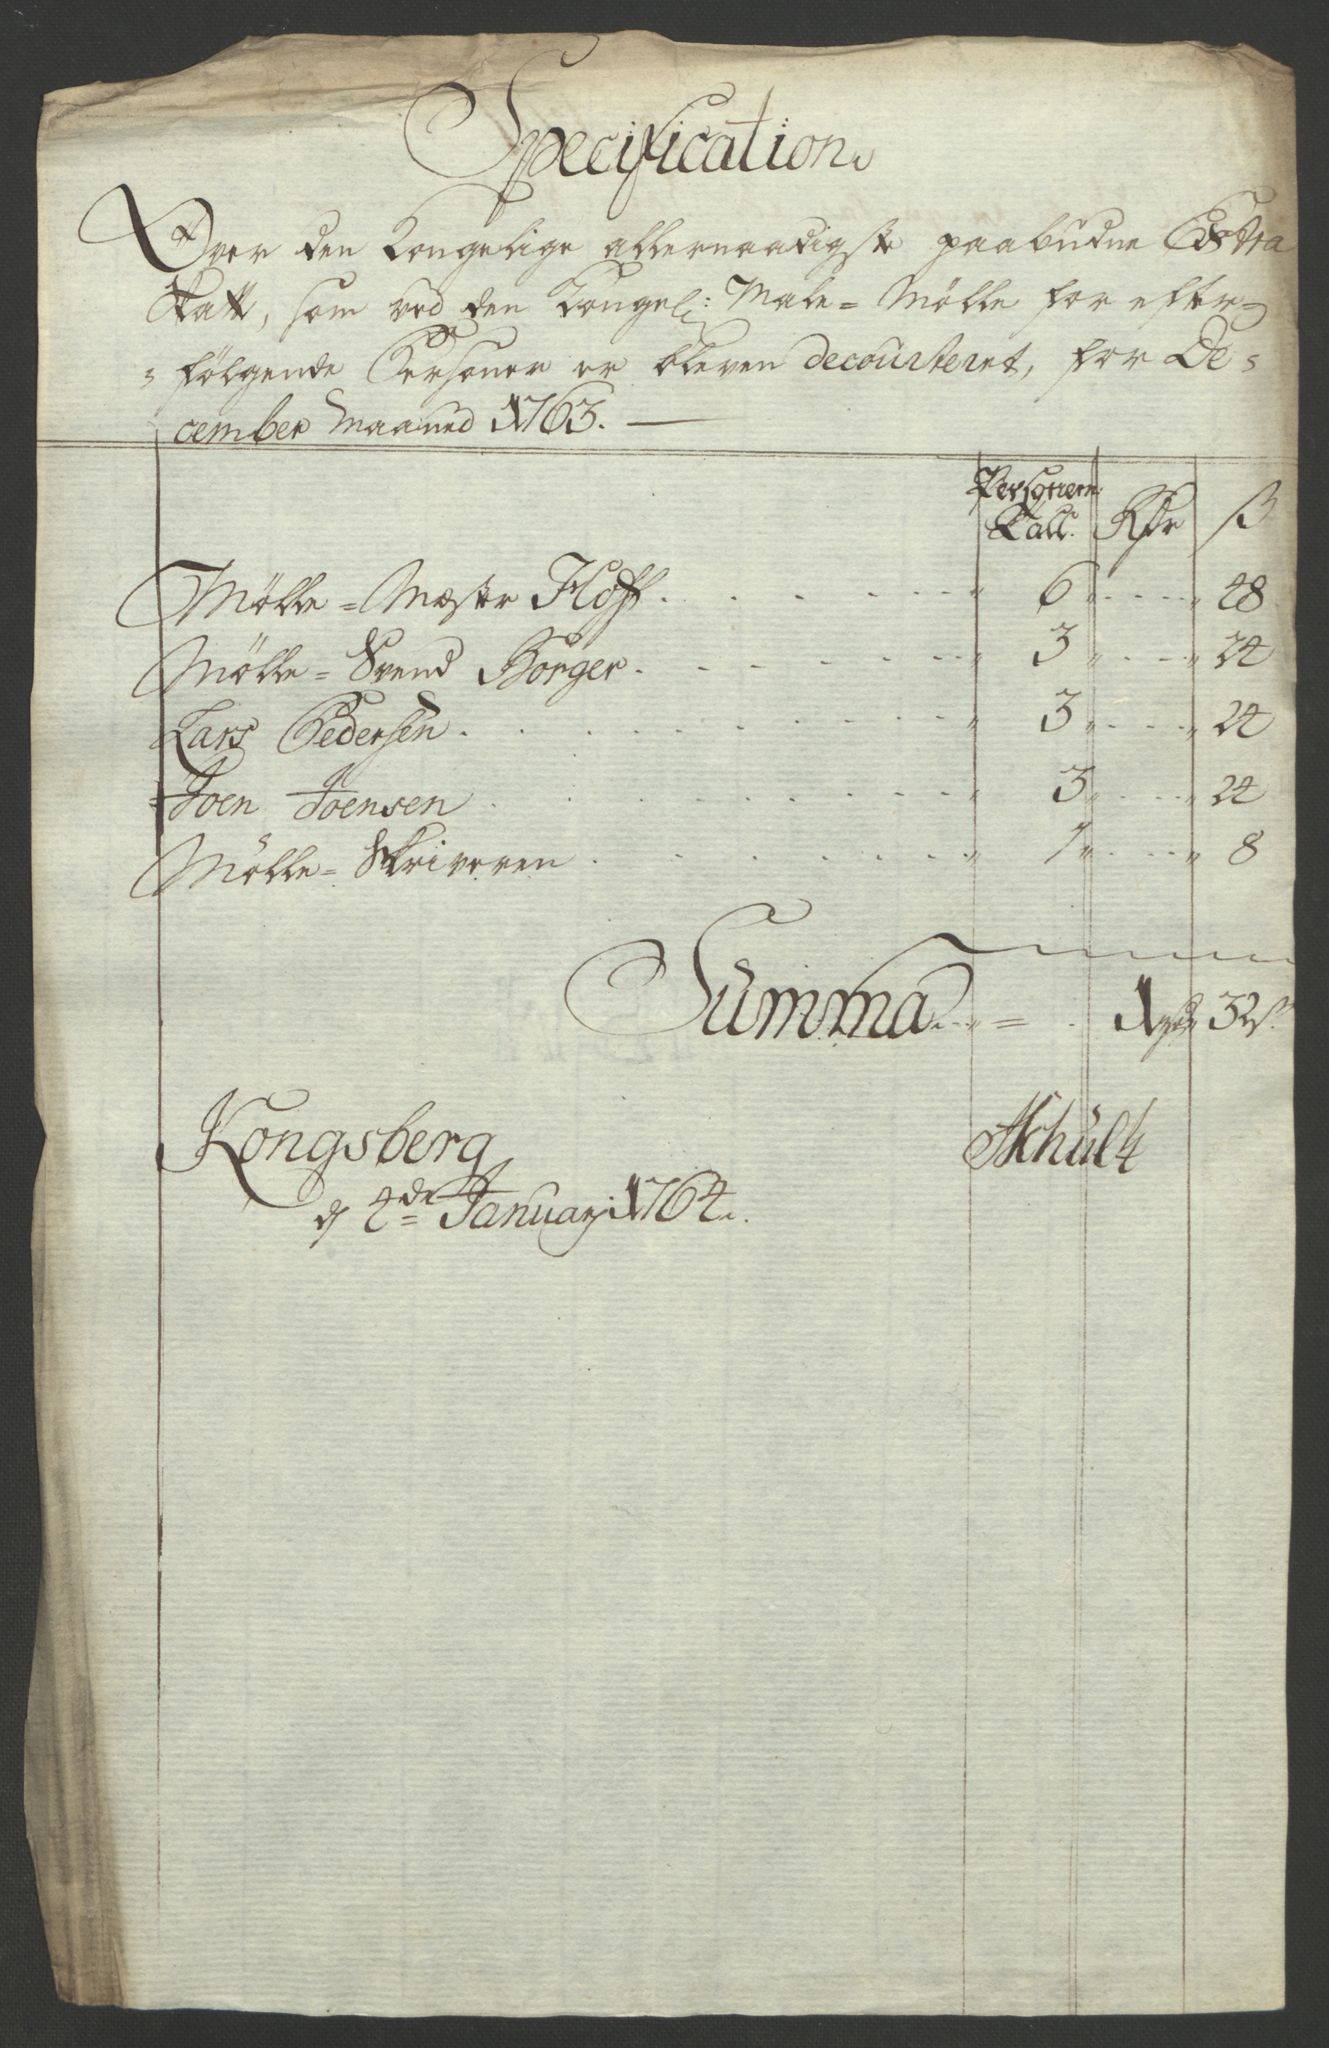 Specification
Over den Kongelige allernaadigste paabudne Extra
Skatt, som ved den Kongel: Male= Mølle for efter=
= følgende Personer er bleven decourteret, for De=
cember Maaned 1763. —
Personern: Tall. Rdr ß
Mølle= Mester Hoff . . . . . 6 . . . 48
Mølle= Svend Børger . . . . . 3 . . . 24
Lars Pedersen . . . . . 3 . . . 24
Joen Joensen . . . . . 3 . . . 24
Mølle= Skriveren . . . . . 1 . . . 8
Summa . . = . 1 rdr 32 ß
Kongsberg Schült
d 4de January 1764.